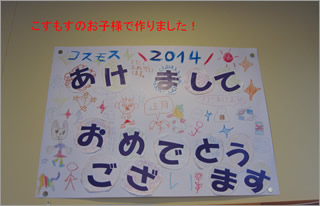 こすもすのお子様で作りました！
コスモス 2014
あけ まして
おめでとう
ござ ます